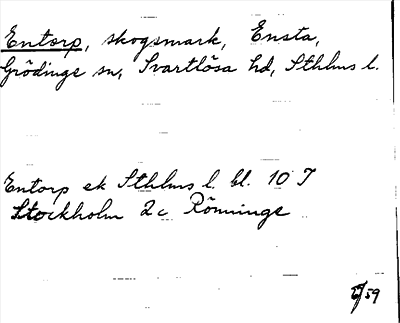 Entorp, skogsmark, Ensta,
Grödinge sn, Svartlösa hd, Sthlms l.
Entorp ek Sthlms l. bl. 10 I
Stockholm 2c Rönninge
59